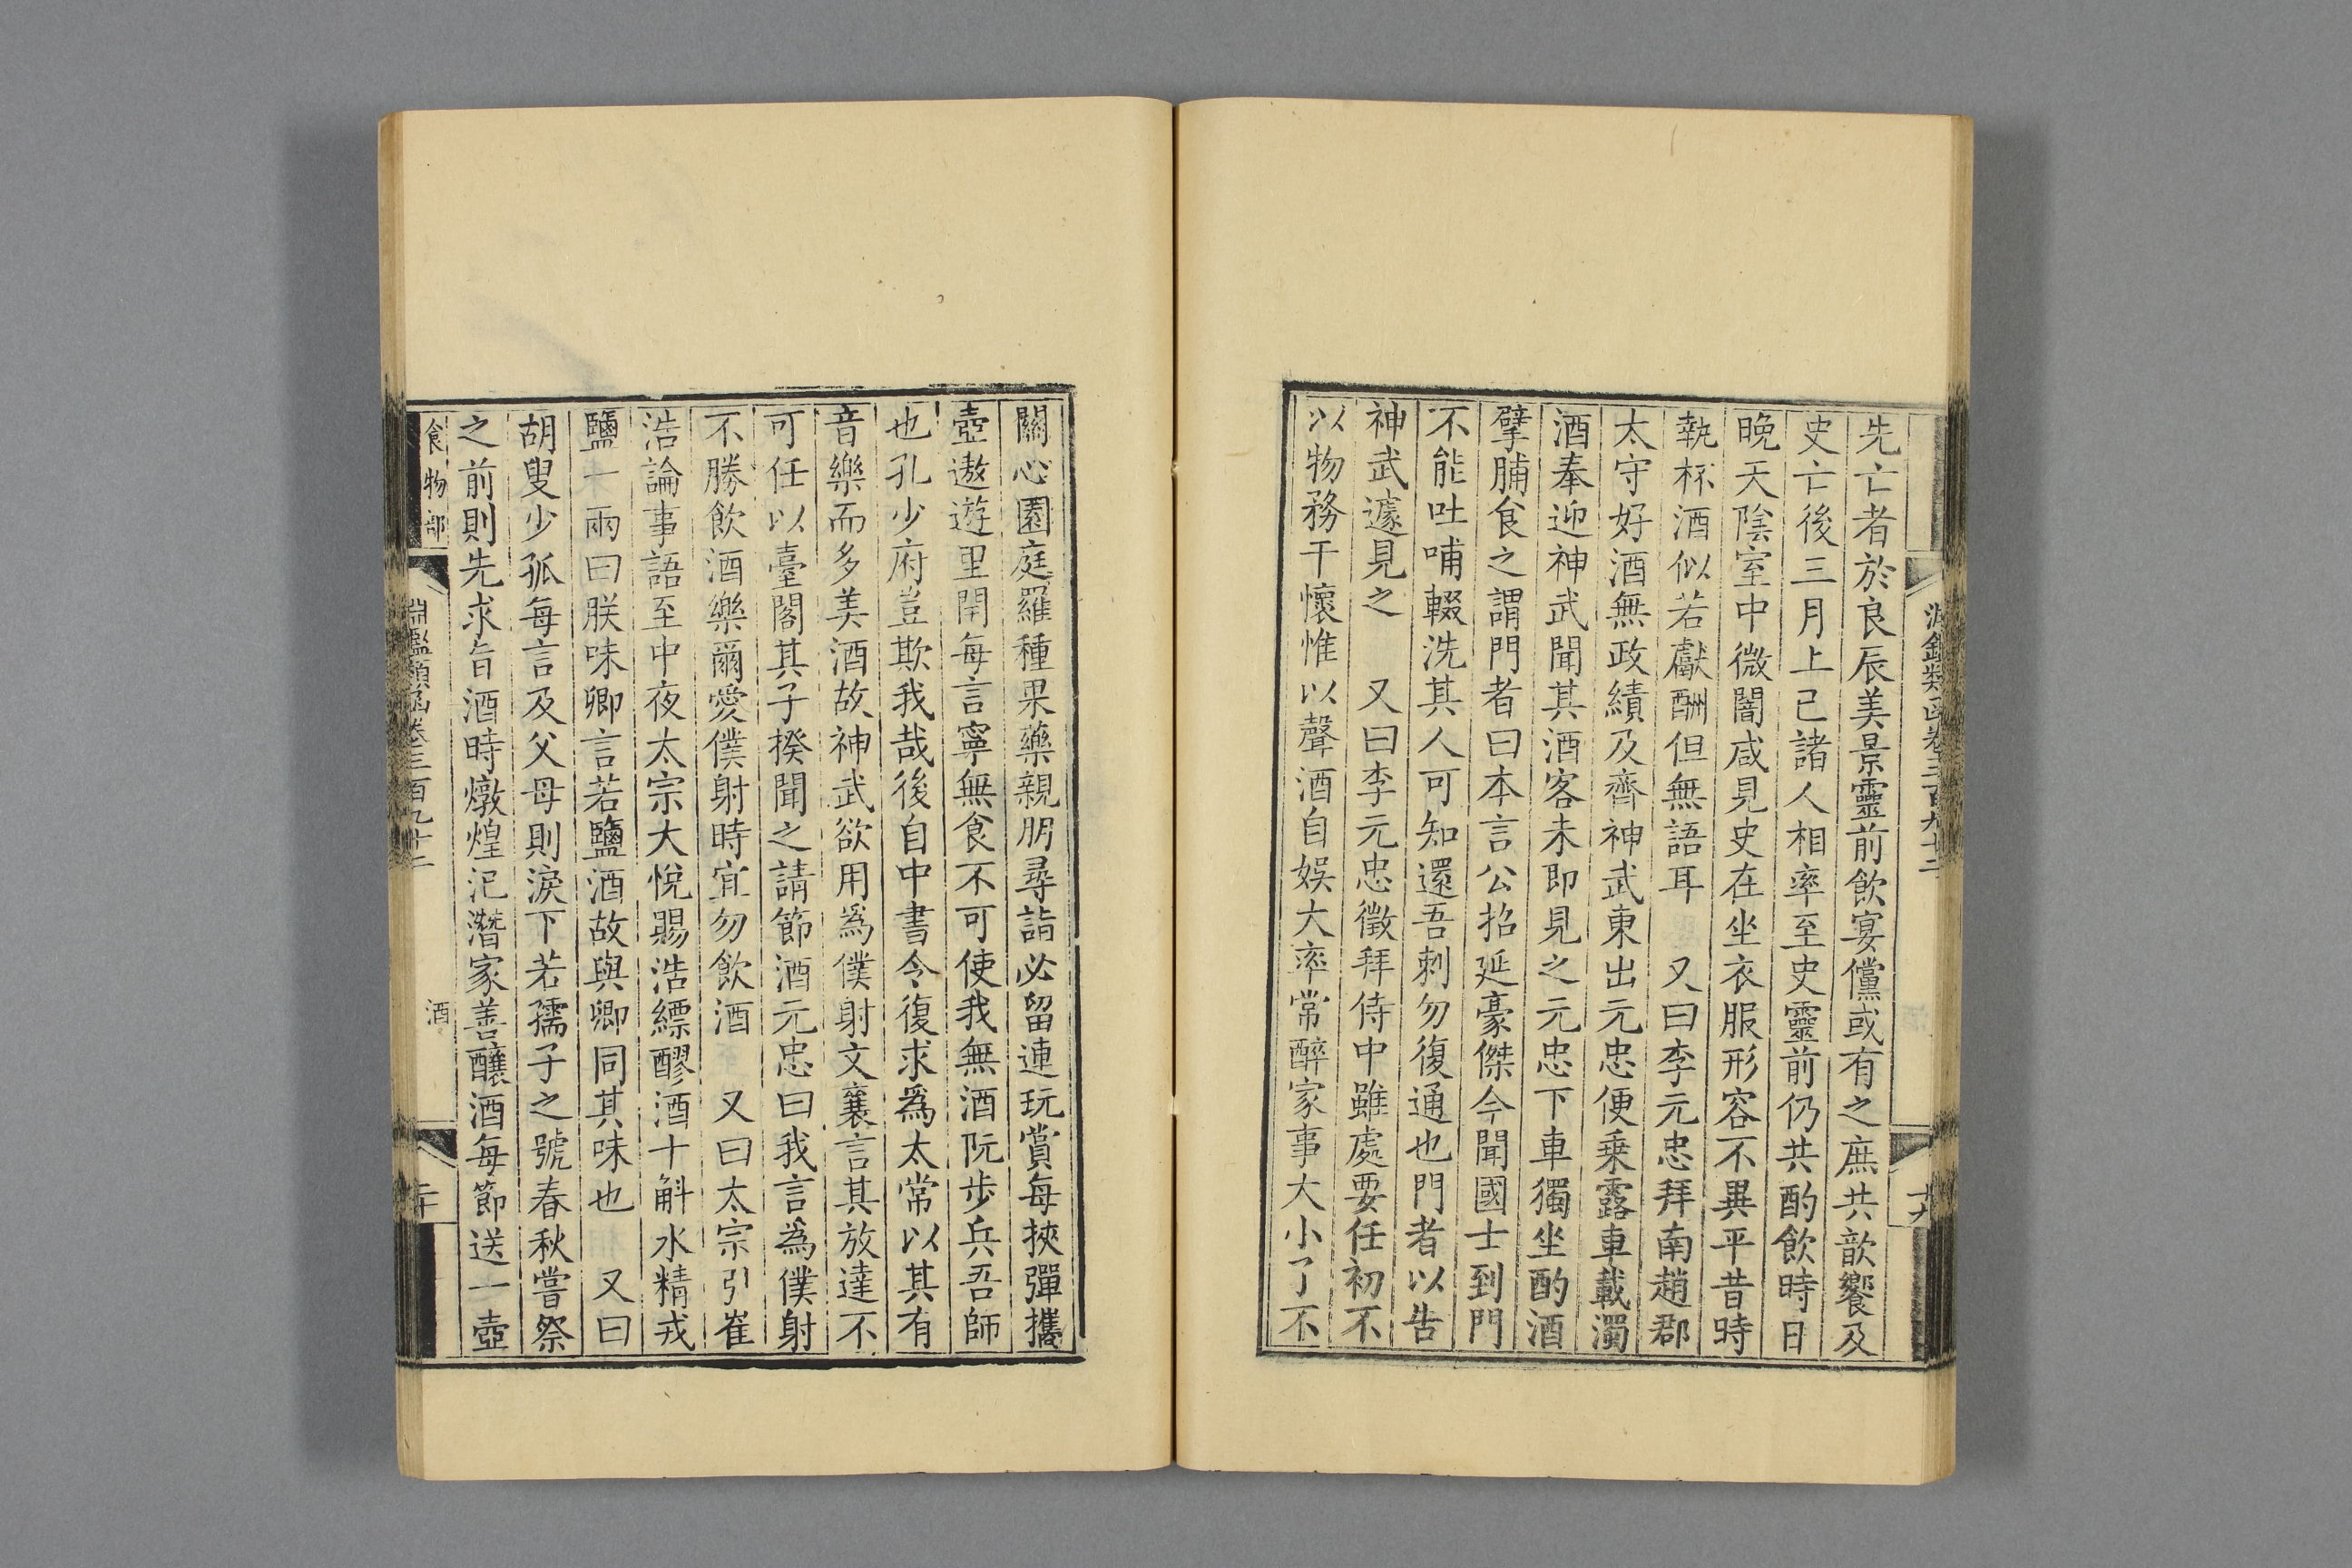 先亡者於良辰美景靈前飲宴儻或有之庶共歆饗及
史亡後三月上已諸人相率至史靈前仍共酌飲時日
晚天陰室中微闇咸見史在坐衣服形容不異平昔時
執杯酒似若獻酬但無語耳 又曰李元忠拜南趙郡
太守好酒無政績及齊神武東出元忠便乗露車載濁
酒奉迎神武聞其酒客未即見之元忠下車獨坐酌酒
擘脯食之謂門者曰本言公招延豪傑今聞國士到門
不能吐哺輟洗其人可知還吾刺勿復通也門者以告
神武遽見之 又曰李元忠徵拜侍中雖處要任初不
以物務干懷惟以聲酒自娛大率常醉家事大小了不
關心園庭羅種果藥親朋尋詣必留連玩賞每挾彈攜
壺遨遊里閈每言寧無食不可使我無酒阮步兵吾師
也孔少府豈欺我哉後自中書令復求爲太常以其有
音樂而多美酒故神武欲用爲僕射文襄言其放達不
可任以臺閣其子搔聞之請節酒元忠曰我言爲僕射
不勝飲酒樂爾愛僕射時宜勿飲酒 又曰太宗引崔
浩論事語至中夜太宗大悅賜浩縹醪酒十斛水精戎
鹽一兩曰朕味卿言若鹽酒故與卿同其味也 又曰
胡叟少孤每言及父母則淚下若孺子之號春秋嘗祭
之前則先求旨酒時燉煌氾潛家善釀酒每節送一壺
食物部 淵鑑類函卷三百九十二 酒 二十